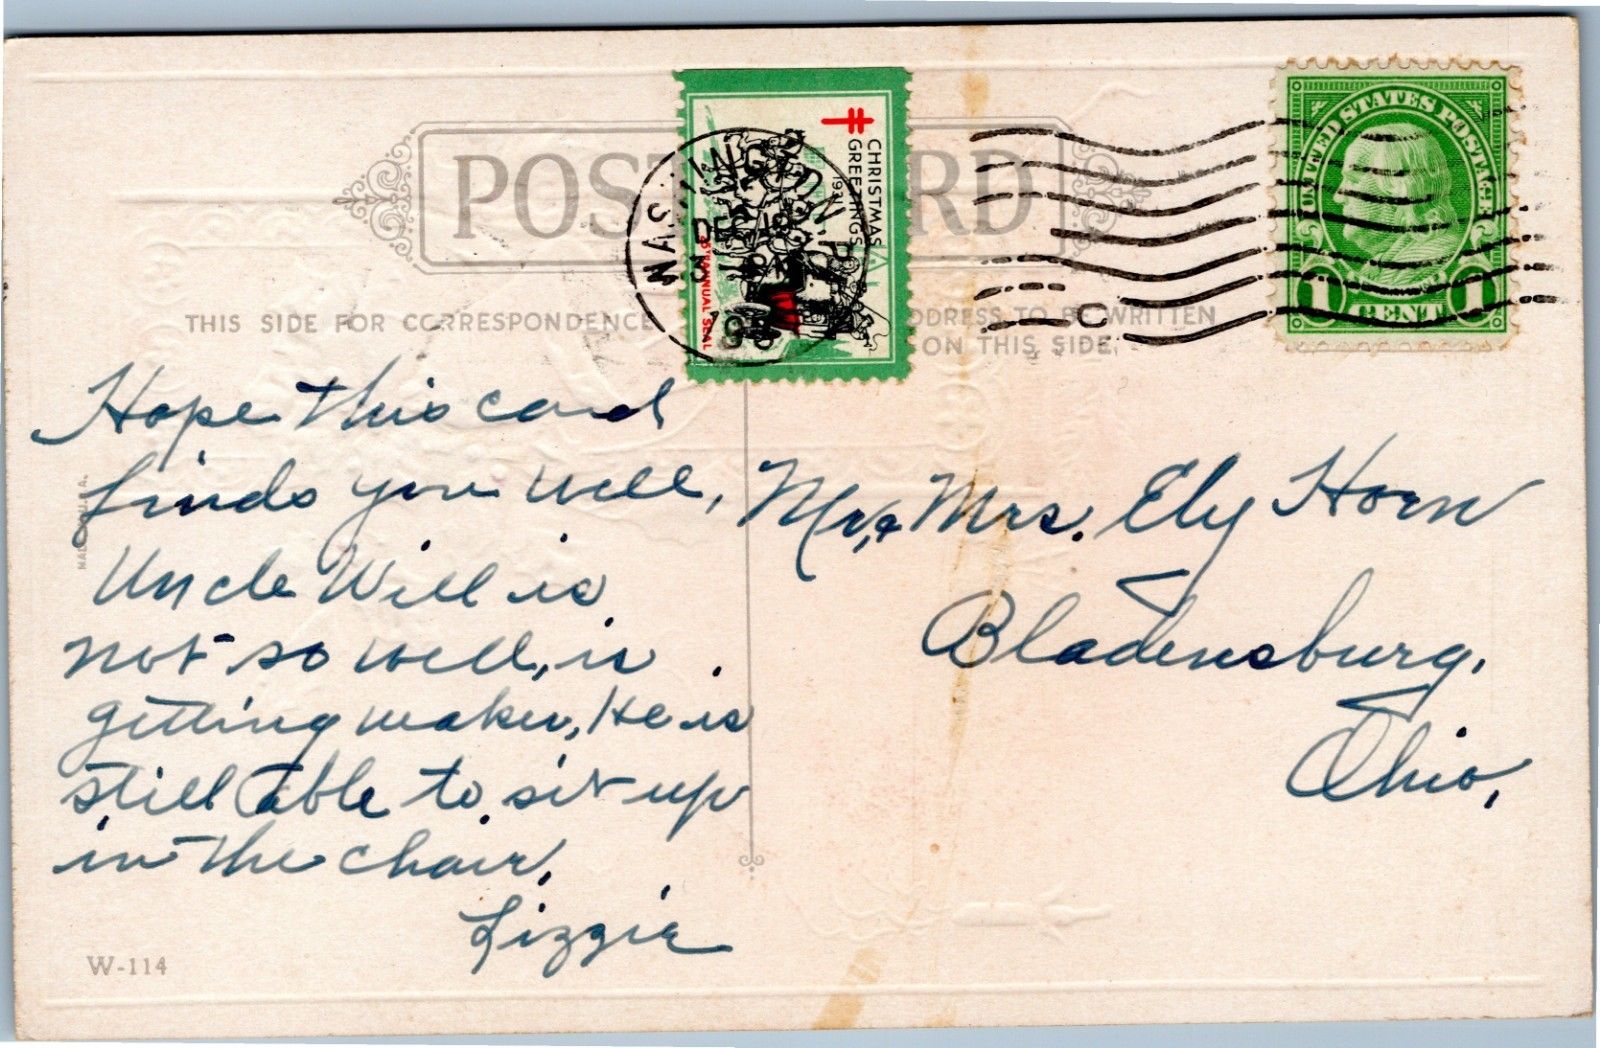 POST CARD
THIS SIDE FOR CORRESPONDENCE
ADDRESS TO BE WRITTEN
ON THIS SIDE.
CHRISTMAS
GREETINGS
ANNUAL SEAL
WASHINGTON, P
DEC 19
UNITED STATES POSTAGE
1 CENT 1
Hope this card
finds you well,
Uncle Will is
not so well, is
getting weaker, He is
still able to sit up
in the chair.
Lizzie
Mr. & Mrs. Ely Horn
Bladensburg,
Ohio,
W-114